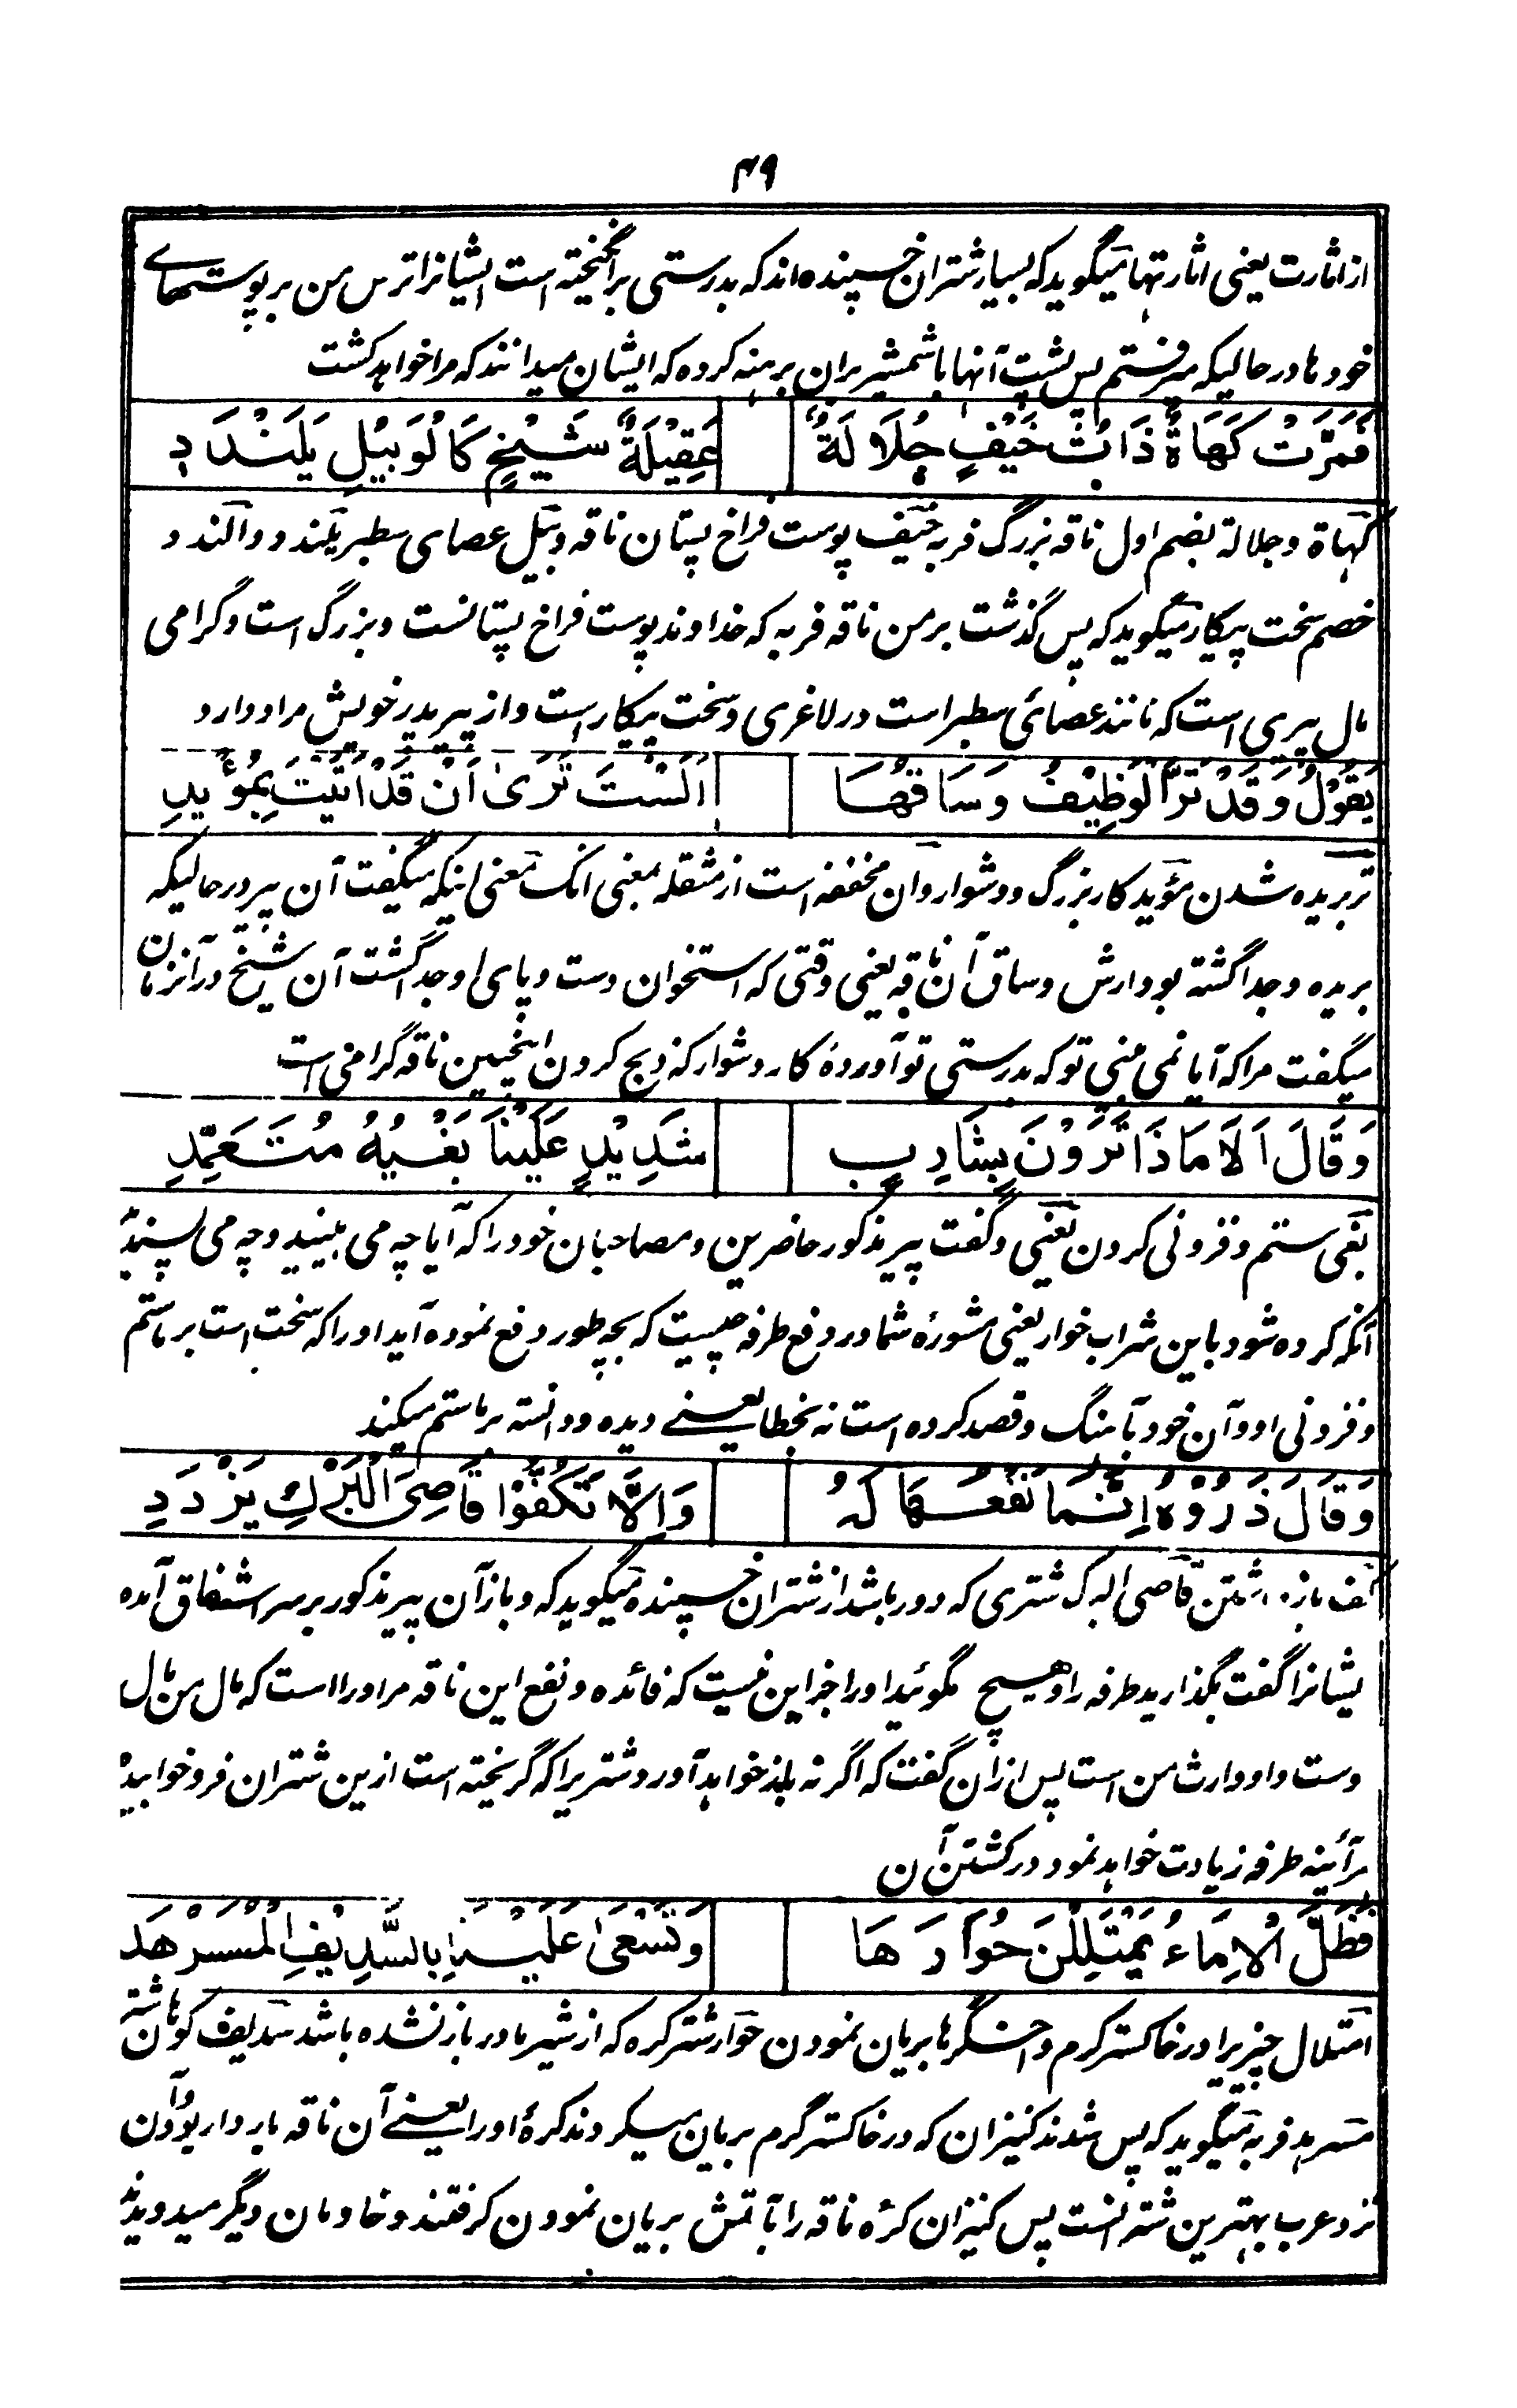 ۴۹
از اثارت یعنی اثارتها میگوید که بسیار شتران خسپنده‌اند که بدرستی برانگیخته است ایشانرا ترس من بر پوستهاے
خودها در حالیکه میرفتم پس پشت آنها با شمشیر بران برهنه کرده که ایشان میدانند که مرا خواهد کشت
فَمَرَّتْ كَهَاةٌ ذَاتُ خَيْفٍ جُلَالَةٌ عَقِيْلَةُ شَيْخٍ كَالْوَبِيْلِ يَلَنْدَدِ
کهاة و جلالة بضم اول ناقه بزرگ فربه خیف پوست فراخ پستان ناقه وبیل عصای سطبر یلندد و الندد
خصم سخت پیکار میگوید که پس گذشت بر من ناقه فربه که خداوند پوست فراخ پستانست و بزرگ است و گرامی
مال پیری است که مانند عصائی سطبر است در لاغری و سخت پیکار است و از پیر پدر خویش مراد دارد
يَقُوْلُ وَقَدْ تَرَّ الْوَظِيْفُ وَسَاقُهَا اَلَسْتَ تَرَى اَنْ قَدْ اَتَيْتَ بِمُؤْيِدِ
تر بریده شدن مؤید کار بزرگ و دشوار و ان مخففه است از مثقله بمعنی انک معنی اینکه میگفت آن پیر در حالیکه
بریده و جدا گشته بود ارش و ساق آن ناقه یعنی وقتی که استخوان دست و پای او جدا گشت آن شیخ در آنزمان
میگفت مرا که آیا نمی بینی تو که بدرستی تو آوردهٔ کار دشوار که ذبح کردن اینچنین ناقه گرامی است
وَقَالَ اَلَا مَاذَا تَرَوْنَ بِشَارِبٍ شَدِيْدٍ عَلَيْنَا بَغْيُهُ مُتَعَمِّدِ
بغی ستم و فزونی کردن یعنی و گفت پیر مذکور حاضرین و مصاحبان خود را که آیا چه می بینید و چه می پسندید
آنکه کرده شود باین شراب خوار یعنی مشورهٔ شما در دفع طرفه چیست که بچه طور دفع نموده آید او را که سخت است بر ما ستم
و فزونی او و آن خود بآهنگ و قصد کرده است نه بخطا یعنے دیده و دانسته بر ما ستم میکند
وَقَالَ ذَرُوْهُ اِنَّمَا نَفْعُهَا لَهُ وَاِلَّا تَكُفُّوْا قَاصِيَ الْبَرْكِ يَزْدَدِ
کف باز داشتن قاصی البرک شتری که دور باشد از شتران خسپنده میگوید که و باز آن پیر مذکور بر سر اشفاق آمده
یشانرا گفت بگذارید طرفه را و هیچ مگوئید او را جز این نیست که فائده و نفع این ناقه مر او را است که مال من مال
وست و او وارث من است پس ازان گفت که اگر نه باز خواهد آورد شتریرا که گریخته است ازین شتران فرو خوابیده
برآئینه طرفه زیادت خواهد نمود در کشتن آن
فَظَلَّ الْاِمَاءُ يَمْتَلِلْنَ حُوَارَهَا وَتَسْعَى عَلَيْنَا بِالسَّدِيْفِ الْمُسَرْهَدِ
امتلال چیزیرا در خاکستر گرم و اخگرها بریان نمودن حوار شتر کره که از شیر مادر باز نشده باشد سدیف کوهان شتر
مسرهد فربه میگوید که پس شدند کنیزان که در خاکستر گرم بریان میکردند کرهٔ او را یعنے آن ناقه باردار بود و آن
نزد عرب بهترین شترانست پس کنیزان کرهٔ ناقه را بآتش بریان نمودن گرفتند و خادمان دیگر میدویدند